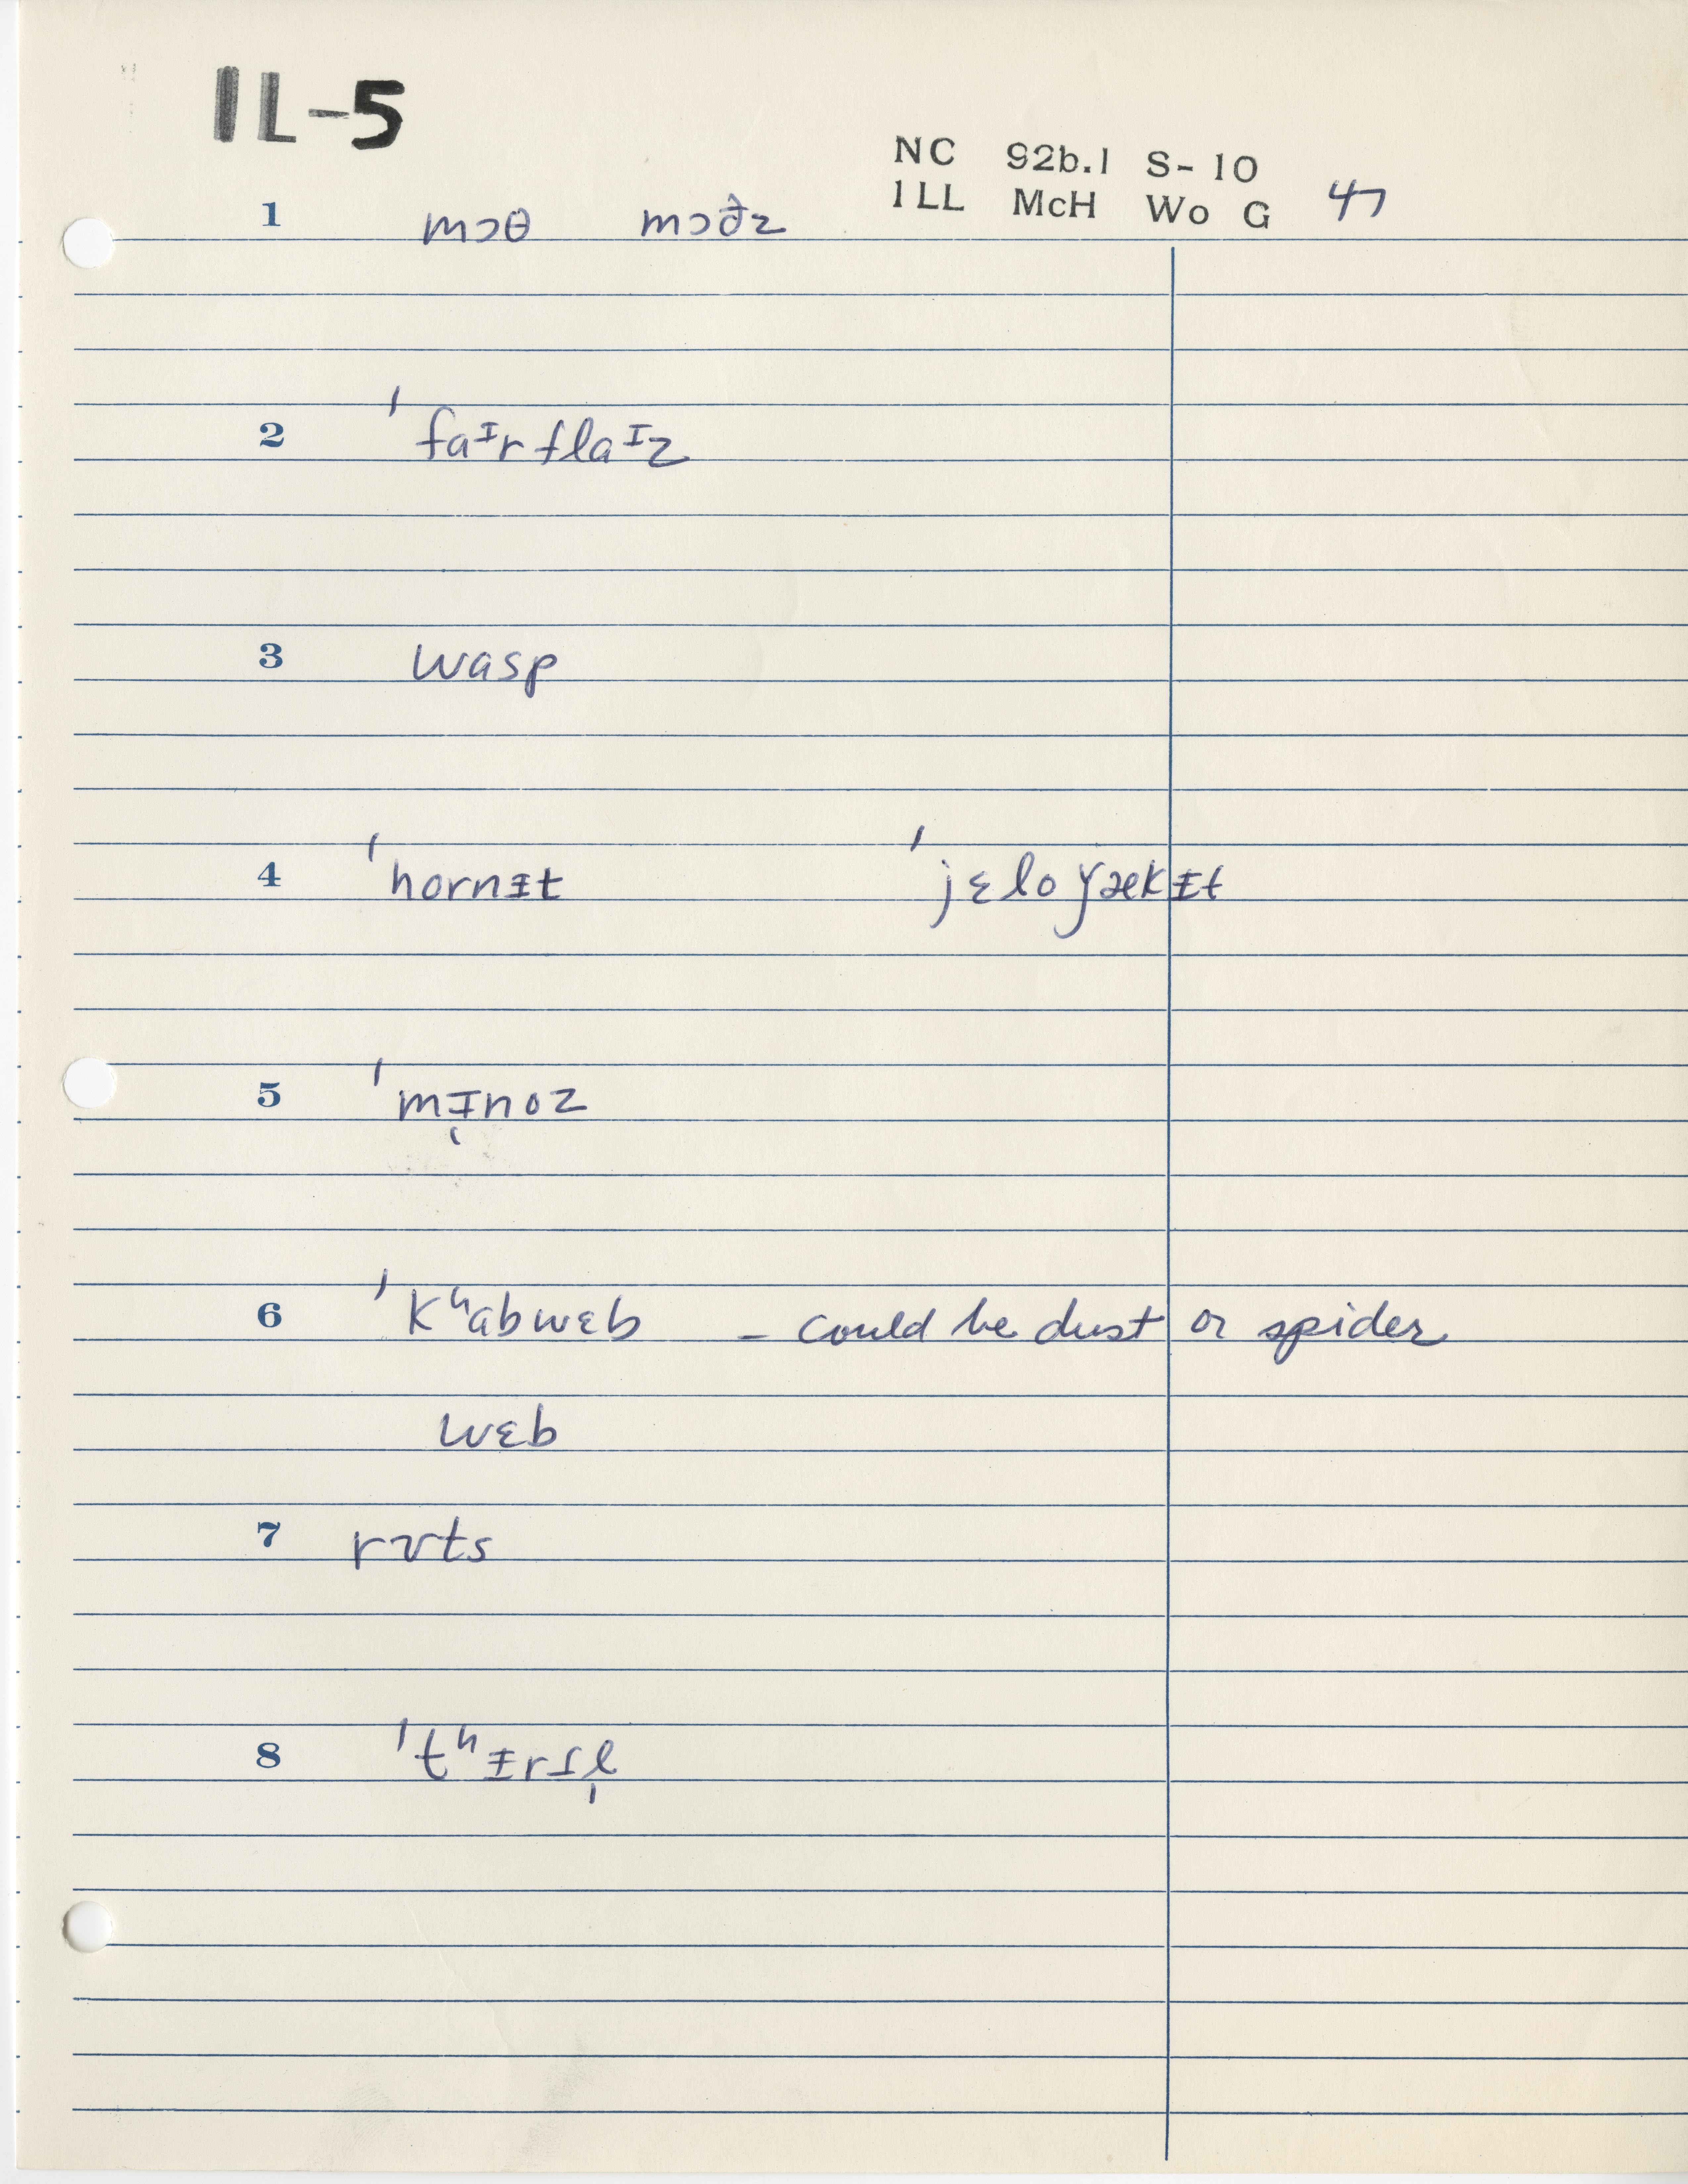 IL-5
NC 92b.1 S-10
ILL McH Wo G 47
1 mɔθ mɔðz
2 ˈfaᶦrflaᶦz
3 wasp
4 ˈhornɪt ˈjɛloǰækɪt
5 ˈmɪ̨noz
6 ˈkʰabwɛb – could be dust or spider
wɛb
7 rʊts
8 ˈtʰɨrsl̩